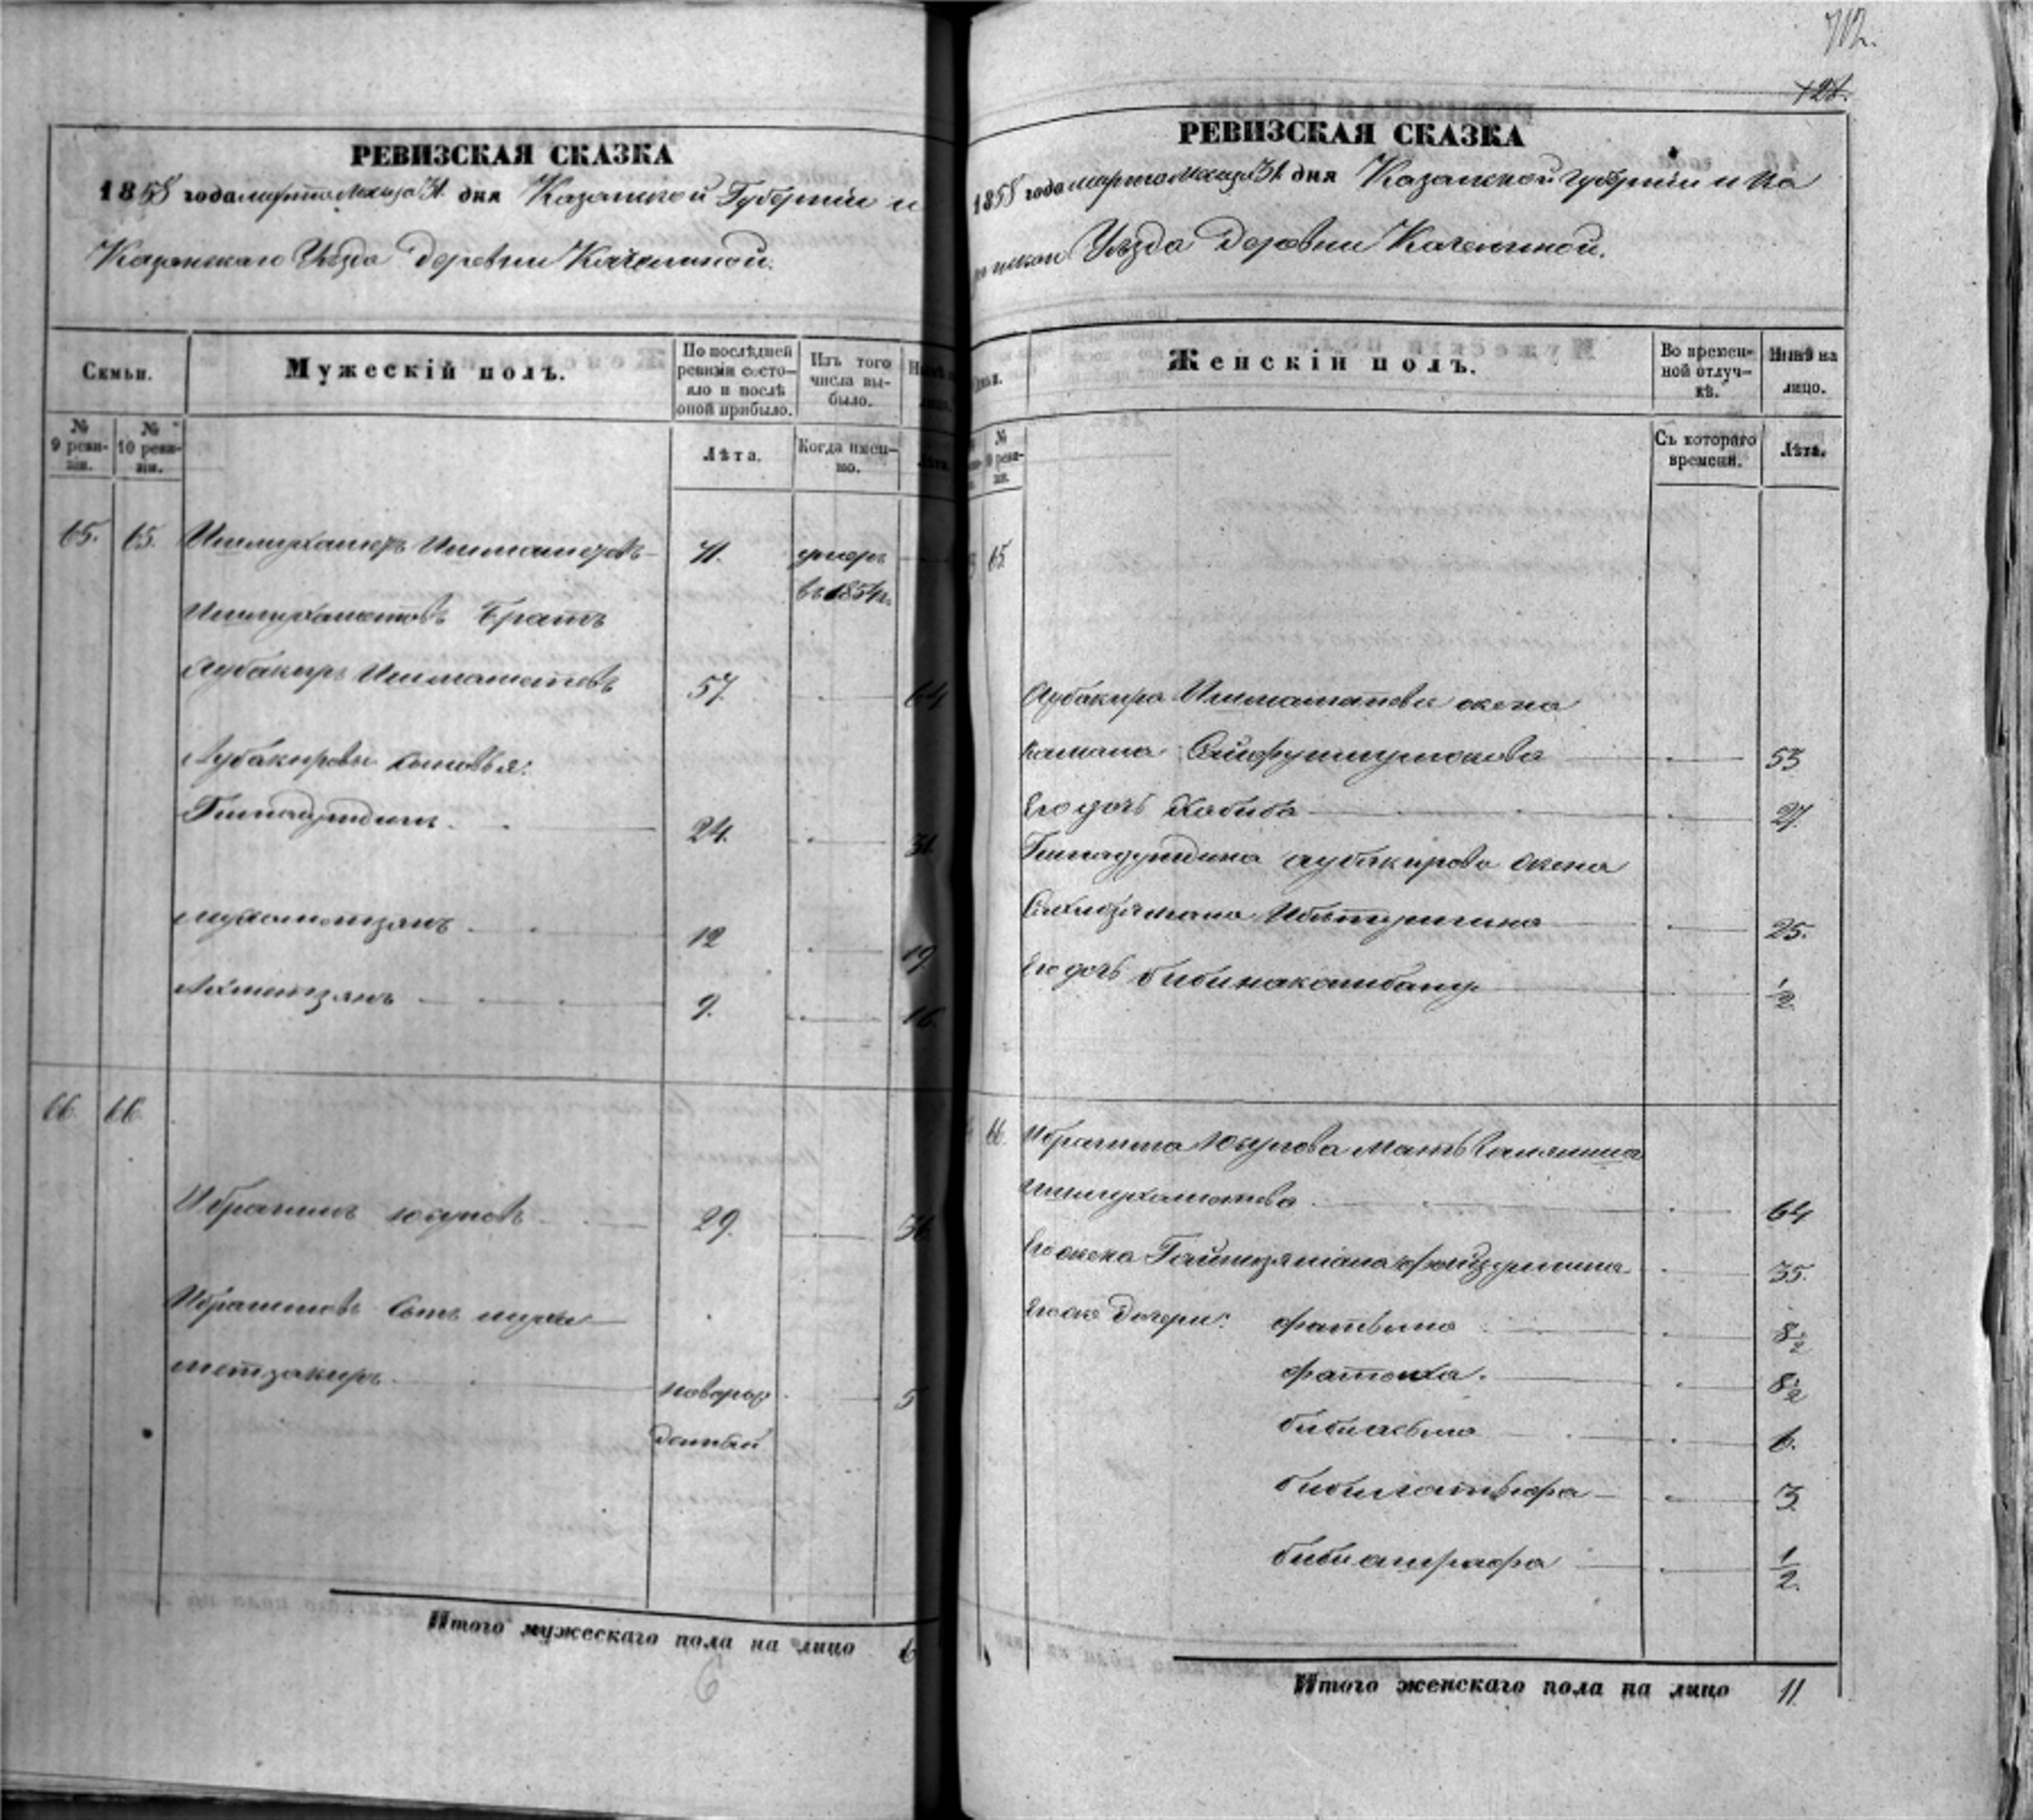 РЕВИЗСКАЯ СКАЗКА
1858 года марта месяца 31 дня Казанской Губернии и
Казанскаго Уезда Деревни Качелиной.
Семьи.
Мужескій полъ.
По послѣдней ревизіи состояло и послѣ оной прибыло.
Изъ того числа выбыло.
№ 9 ревизіи.
№ 10 ревизіи.
Лѣта.
Когда именно.
Лѣта.
65. 65. Ишмухаметъ Ишмаметевъ 71. умеръ
въ 1854 г.
Ишмухаметовъ Братъ
Аубакиръ Ишмаметевъ 57. 64
Аубакировы сыновья:
Гинадутдинъ 24. 31.
Мухаметзянъ 12 19
Ахметзянъ 9. 16.
66. 66.
Ибрагимъ Юсуповъ 29. 36
Ибрагимовъ Сынъ муха
метзакиръ новорож 5
денный
Итого мужескаго пола на лицо 6
6
712.
121.
РЕВИЗСКАЯ СКАЗКА
1858 года марта месяца 31 дня Казанской губернии и Ка
занскаго Уѣзда Деревни Качелиной.
Женскій полъ.
Во временной отлучкѣ.
Нынѣ на лицо.
№ 10 ревизіи.
Съ котораго времени.
Лѣта.
65.
Аубакира Ишмаметева жена
Сайфутмулюкова 53
Его дочь Хабиба 27.
Гинадутдина аубакирова жена
25.
Его дочь 1/2
66. Ибрагима Юсупова Мать
Ишмухаметова 64
Его жена 35.
Его же Дочери: фатыма 8 1/2
фатиха. 8 1/2
бибиасьма 6.
бибилатыфа 3
бибиашрафа 1/2.
Итого женскаго пола на лицо 11.